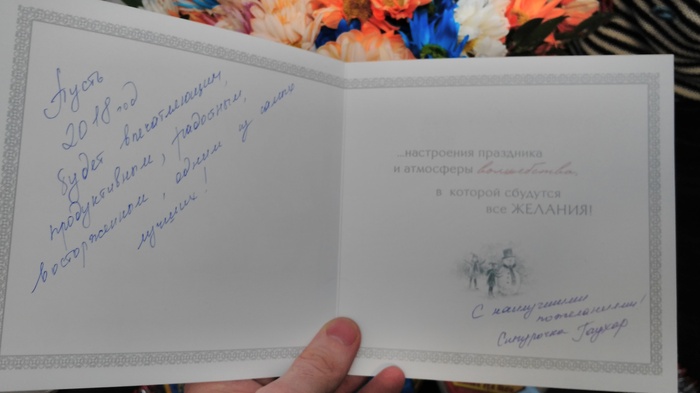 Пусть
2018 год
будет впечатляющим,
продуктивным, радостным,
восторженным, одним из самых
лучших!
...настроения праздника
и атмосферы волшебства,
в которой сбудутся
все ЖЕЛАНИЯ!
С наилучшими
пожеланиями!
Гаухар